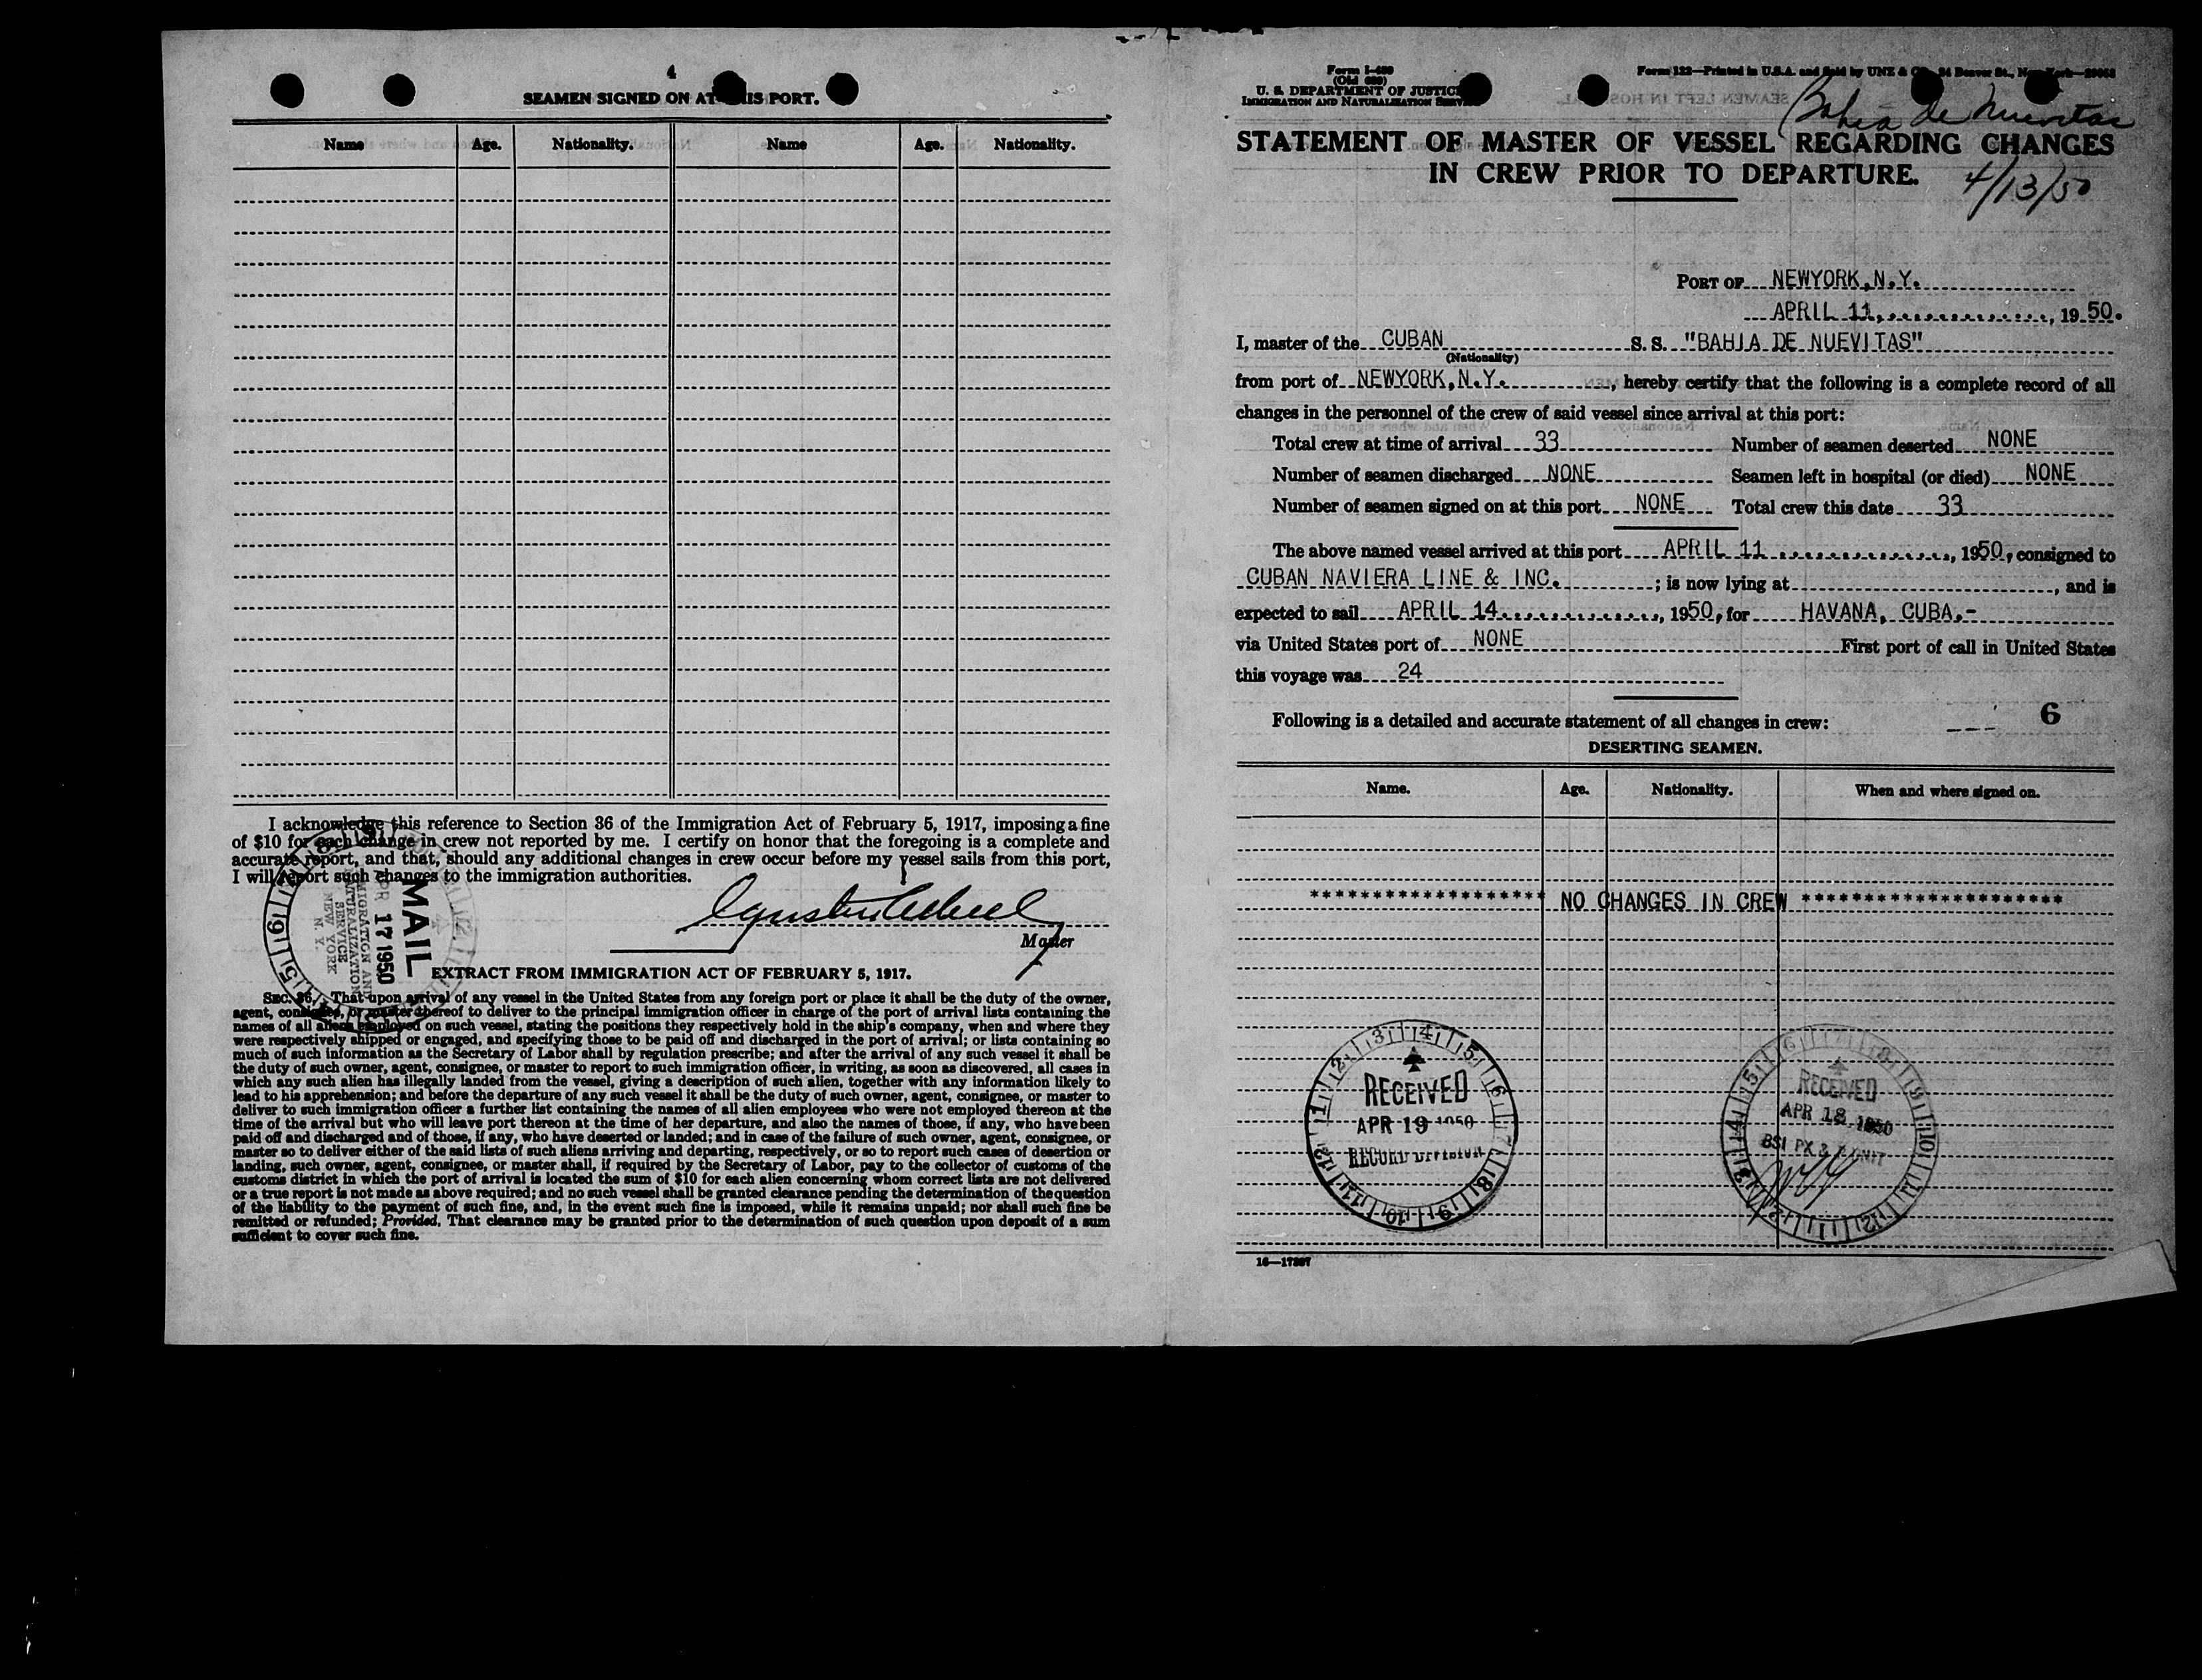 4
SEAMEN SIGNED ON AT THIS PORT.
Name Age. Nationality. Name Age. Nationality.
I acknowledge this reference to Section 36 of the Immigration Act of February 5, 1917, imposing a fine
of $10 for each change in crew not reported by me. I certify on honor that the foregoing is a complete and
accurate report, and that, should any additional changes in crew occur before my vessel sails from this port,
I will report such changes to the immigration authorities.
Master
MAIL
APR 17 1950
IMMIGRATION AND
NATURALIZATION
SERVICE
NEW YORK
N. Y.
EXTRACT FROM IMMIGRATION ACT OF FEBRUARY 5, 1917.
SEC. 36. That upon arrival of any vessel in the United States from any foreign port or place it shall be the duty of the owner,
agent, consignee, or master thereof to deliver to the principal immigration officer in charge of the port of arrival lists containing the
names of all aliens employed on such vessel, stating the positions they respectively hold in the ship's company, when and where they
were respectively shipped or engaged, and specifying those to be paid off and discharged in the port of arrival; or lists containing so
much of such information as the Secretary of Labor shall by regulation prescribe; and after the arrival of any such vessel it shall be
the duty of such owner, agent, consignee, or master to report to such immigration officer, in writing, as soon as discovered, all cases in
which any such alien has illegally landed from the vessel, giving a description of such alien, together with any information likely to
lead to his apprehension; and before the departure of any such vessel it shall be the duty of such owner, agent, consignee, or master to
deliver to such immigration officer a further list containing the names of all alien employees who were not employed thereon at the
time of the arrival but who will leave port thereon at the time of her departure, and also the names of those, if any, who have been
paid off and discharged and of those, if any, who have deserted or landed; and in case of the failure of such owner, agent, consignee, or
master so to deliver either of the said lists of such aliens arriving and departing, respectively, or so to report such cases of desertion or
landing, such owner, agent, consignee, or master shall, if required by the Secretary of Labor, pay to the collector of customs of the
customs district in which the port of arrival is located the sum of $10 for each alien concerning whom correct lists are not delivered
or a true report is not made as above required; and no such vessel shall be granted clearance pending the determination of the question
of the liability to the payment of such fine, and, in the event such fine is imposed, while it remains unpaid; nor shall such fine be
remitted or refunded; Provided, That clearance may be granted prior to the determination of such question upon deposit of a sum
sufficient to cover such fine.
Form I-489
(Old 689)
U. S. DEPARTMENT OF JUSTICE
IMMIGRATION AND NATURALIZATION SERVICE
Form 122—Printed in U.S.A. and Sold by UNZ & CO., 24 Beaver St., New York
Bahia de Nuevitas
STATEMENT OF MASTER OF VESSEL REGARDING CHANGES
IN CREW PRIOR TO DEPARTURE.
4/13/50
PORT OF NEWYORK,N.Y.
APRIL 11, 1950.
I, master of the CUBAN S. S. "BAHIA DE NUEVITAS"
(Nationality)
from port of NEWYORK,N.Y. , hereby certify that the following is a complete record of all
changes in the personnel of the crew of said vessel since arrival at this port:
Total crew at time of arrival 33 Number of seamen deserted NONE
Number of seamen discharged NONE Seamen left in hospital (or died) NONE
Number of seamen signed on at this port NONE Total crew this date 33
The above named vessel arrived at this port APRIL 11 , 1950, consigned to
CUBAN NAVIERA LINE & INC. ; is now lying at , and is
expected to sail APRIL 14 , 1950, for HAVANA, CUBA.-
via United States port of NONE First port of call in United States
this voyage was 24
Following is a detailed and accurate statement of all changes in crew:
6
DESERTING SEAMEN.
Name. Age. Nationality. When and where signed on.
******************* NO CHANGES IN CREW *********************
RECEIVED
APR 19 1950
RECORD DIVISION
RECEIVED
APR 18 1950
16—17287